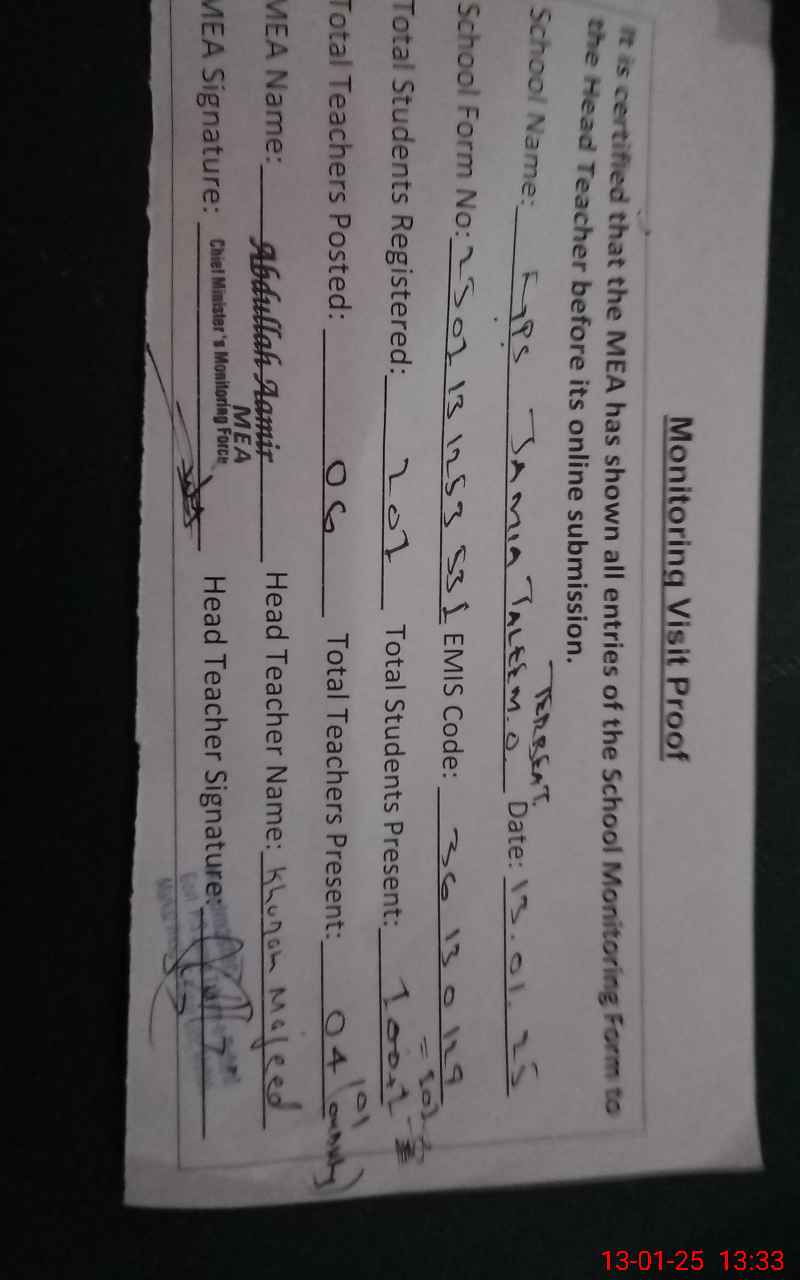 Monitoring Visit Proof
It is certified that the MEA has shown all entries of the School Monitoring Form to
the Head Teacher before its online submission.
TENREAT.
School Name: GGPS JAMIA TALEEM.O Date: 13.01.25
School Form No: 2501131253531 EMIS Code: 36130129
Total Students Registered: 202 Total Students Present: 100+2 = 102
Total Teachers Posted: 06 Total Teachers Present: 04 (01
MEA Name: Abdullah Aamir Head Teacher Name: Khunam Majeed
MEA
Chief Minister's Monitoring Force
MEA Signature: Head Teacher Signature:
13-01-25 13:33